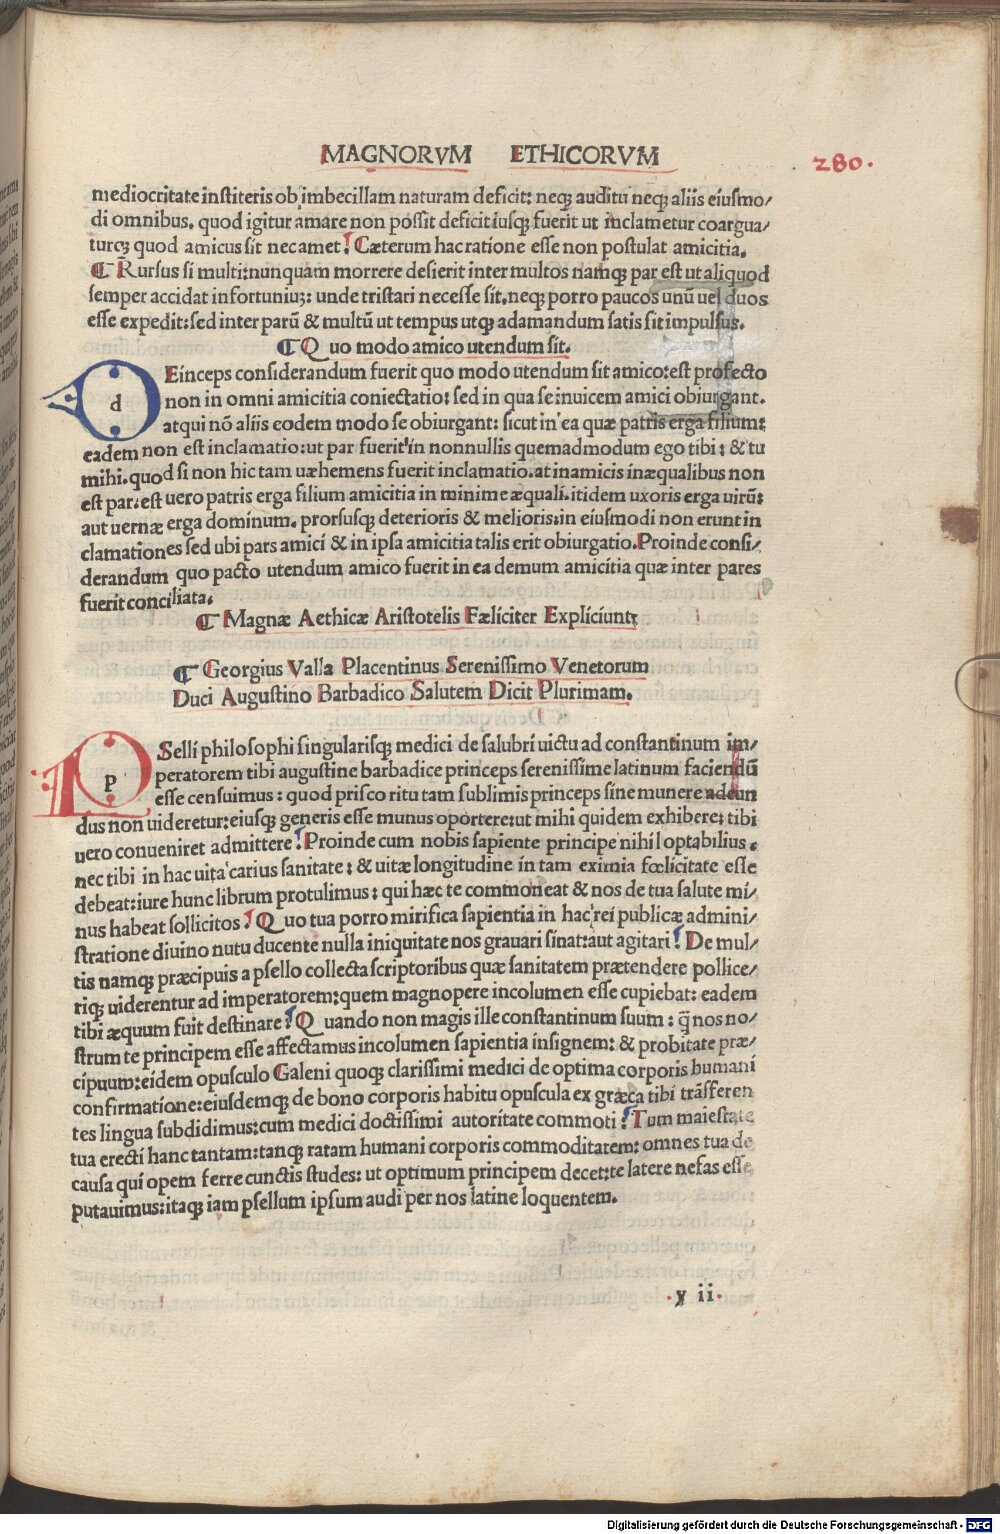 MAGNORVM ETHICORVM
280.
mediocritate institeris ob imbecillam naturam deficit: neqꝫ auditu neqꝫ aliis eiusmo/
di omnibus. quod igitur amare non possit deficit iusqꝫ fuerit ut inclametur coargua/
turqꝫ quod amicus sit nec amet. Cæterum hac ratione esse non postulat amicitia.
¶ Rursus si multi: nunquam morrere desierit inter multos namqꝫ par est ut aliquod
semper accidat infortuniuꝫ: unde tristari necesse sit. neqꝫ porro paucos unū uel duos
esse expedit: sed inter parū & multū ut tempus utqꝫ adamandum satis sit impulsus.
¶ Quo modo amico utendum sit.
d Einceps considerandum fuerit quo modo utendum sit amico: est profecto
non in omni amicitia coniectatio: sed in qua se inuicem amici obiurgant.
atqui nō aliis eodem modo se obiurgant: sicut in ea quæ patris erga filium:
eadem non est inclamatio: ut par fuerit in nonnullis quemadmodum ego tibi: & tu
mihi. quod si non hic tam uæhemens fuerit inclamatio. at in amicis inæqualibus non
est par: est uero patris erga filium amicitia in minime æquali. itidem uxoris erga uirū:
aut uernæ erga dominum. prorsusqꝫ deterioris & melioris: in eiusmodi non erunt in
clamationes sed ubi pars amici & in ipsa amicitia talis erit obiurgatio. Proinde consi/
derandum quo pacto utendum amico fuerit in ea demum amicitia quæ inter pares
fuerit conciliata.
¶ Magnæ Aethicæ Aristotelis Fæliciter Expliciunt:
¶ Georgius Valla Placentinus Serenissimo Venetorum
Duci Augustino Barbadico Salutem Dicit Plurimam.
p Selli philosophi singularisqꝫ medici de salubri uictu ad constantinum im/
peratorem tibi augustine barbadice princeps serenissime latinum faciendū
esse censuimus: quod prisco ritu tam sublimis princeps sine munere adeun
dus non uideretur: eiusqꝫ generis esse munus oportere: ut mihi quidem exhibere: tibi
uero conueniret admittere. Proinde cum nobis sapiente principe nihil optabilius.
nec tibi in hac uita carius sanitate: & uitæ longitudine in tam eximia fœlicitate esse
debeat: iure hunc librum protulimus: qui hæc te commoneat & nos de tua salute mi/
nus habeat sollicitos. Quo tua porro mirifica sapientia in hac rei publicæ admini/
stratione diuino nutu ducente nulla iniquitate nos grauari sinat: aut agitari. De mul/
tis namqꝫ præcipuis a psello collecta scriptoribus quæ sanitatem prætendere pollice/
riqꝫ uiderentur ad imperatorem: quem magnopere incolumen esse cupiebat: eadem
tibi æquum fuit destinare. Quando non magis ille constantinum suum: q̄ nos no/
strum te principem esse affectamus incolumen sapientia insignem: & probitate præ/
cipuum: eidem opusculo Galeni quoqꝫ clarissimi medici de optima corporis humani
confirmatione: eiusdemqꝫ de bono corporis habitu opuscula ex græca tibi trāsferen
tes lingua subdidimus: cum medici doctissimi autoritate commoti. Tum maiestate
tua erecti hanc tantam: tanqꝫ ratam humani corporis commoditatem: omnes tua de
causa qui opem ferre cunctis studes: ut optimum principem decet: te latere nefas esse
putauimus: itaqꝫ iam psellum ipsum audi per nos latine loquentem.
y ii
Digitalisierung gefördert durch die Deutsche Forschungsgemeinschaft - DFG